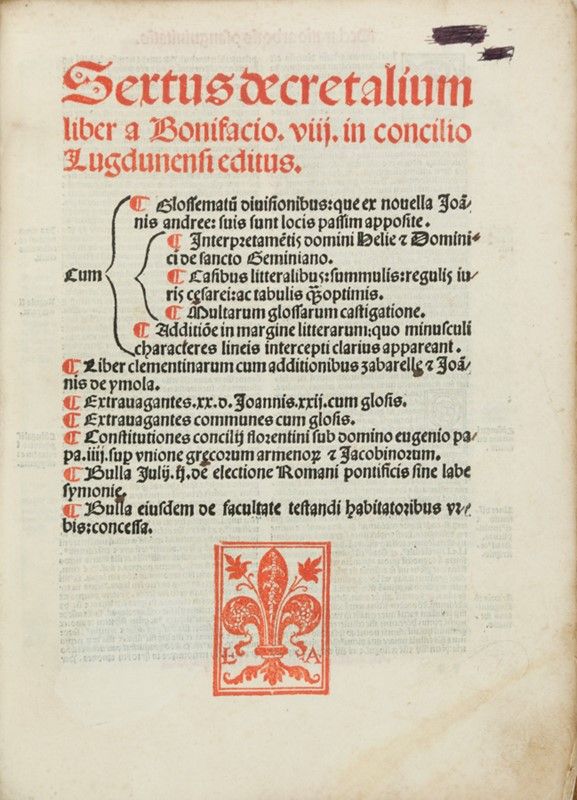 Sextus decretalium
liber a Bonifacio. viij. in concilio
Lugdunensi editus.
Cum
¶ Glossematū diuisionibus: que ex nouella Joā⸗
nis andree: suis sunt locis passim apposite.
¶ Interpretamētis domini Helie ⁊ Domini⸗
ci de sancto Geminiano.
¶ Casibus litteralibus: summulis: regulis iu⸗
ris cesarei: ac tabulis q̃optimis.
¶ Multarum glossarum castigatione.
¶ Additiōe in margine litterarum: quo minusculi
characteres lineis intercepti clarius appareant.
¶ Liber clementinarum cum additionibus zabarelle ⁊ Joā⸗
nis de ymola.
¶ Extrauagantes .xx. d. Joannis .xxij. cum glosis.
¶ Extrauagantes communes cum glosis.
¶ Constitutiones concilij florentini sub domino eugenio pa⸗
pa .iiij. sup vnione grecorum armenoꝝ ⁊ Jacobinorum.
¶ Bulla Julij. ij. de electione Romani pontificis sine labe
symonie.
¶ Bulla eiusdem de facultate testandi habitatoribus vr⸗
bis: concessa.
L A